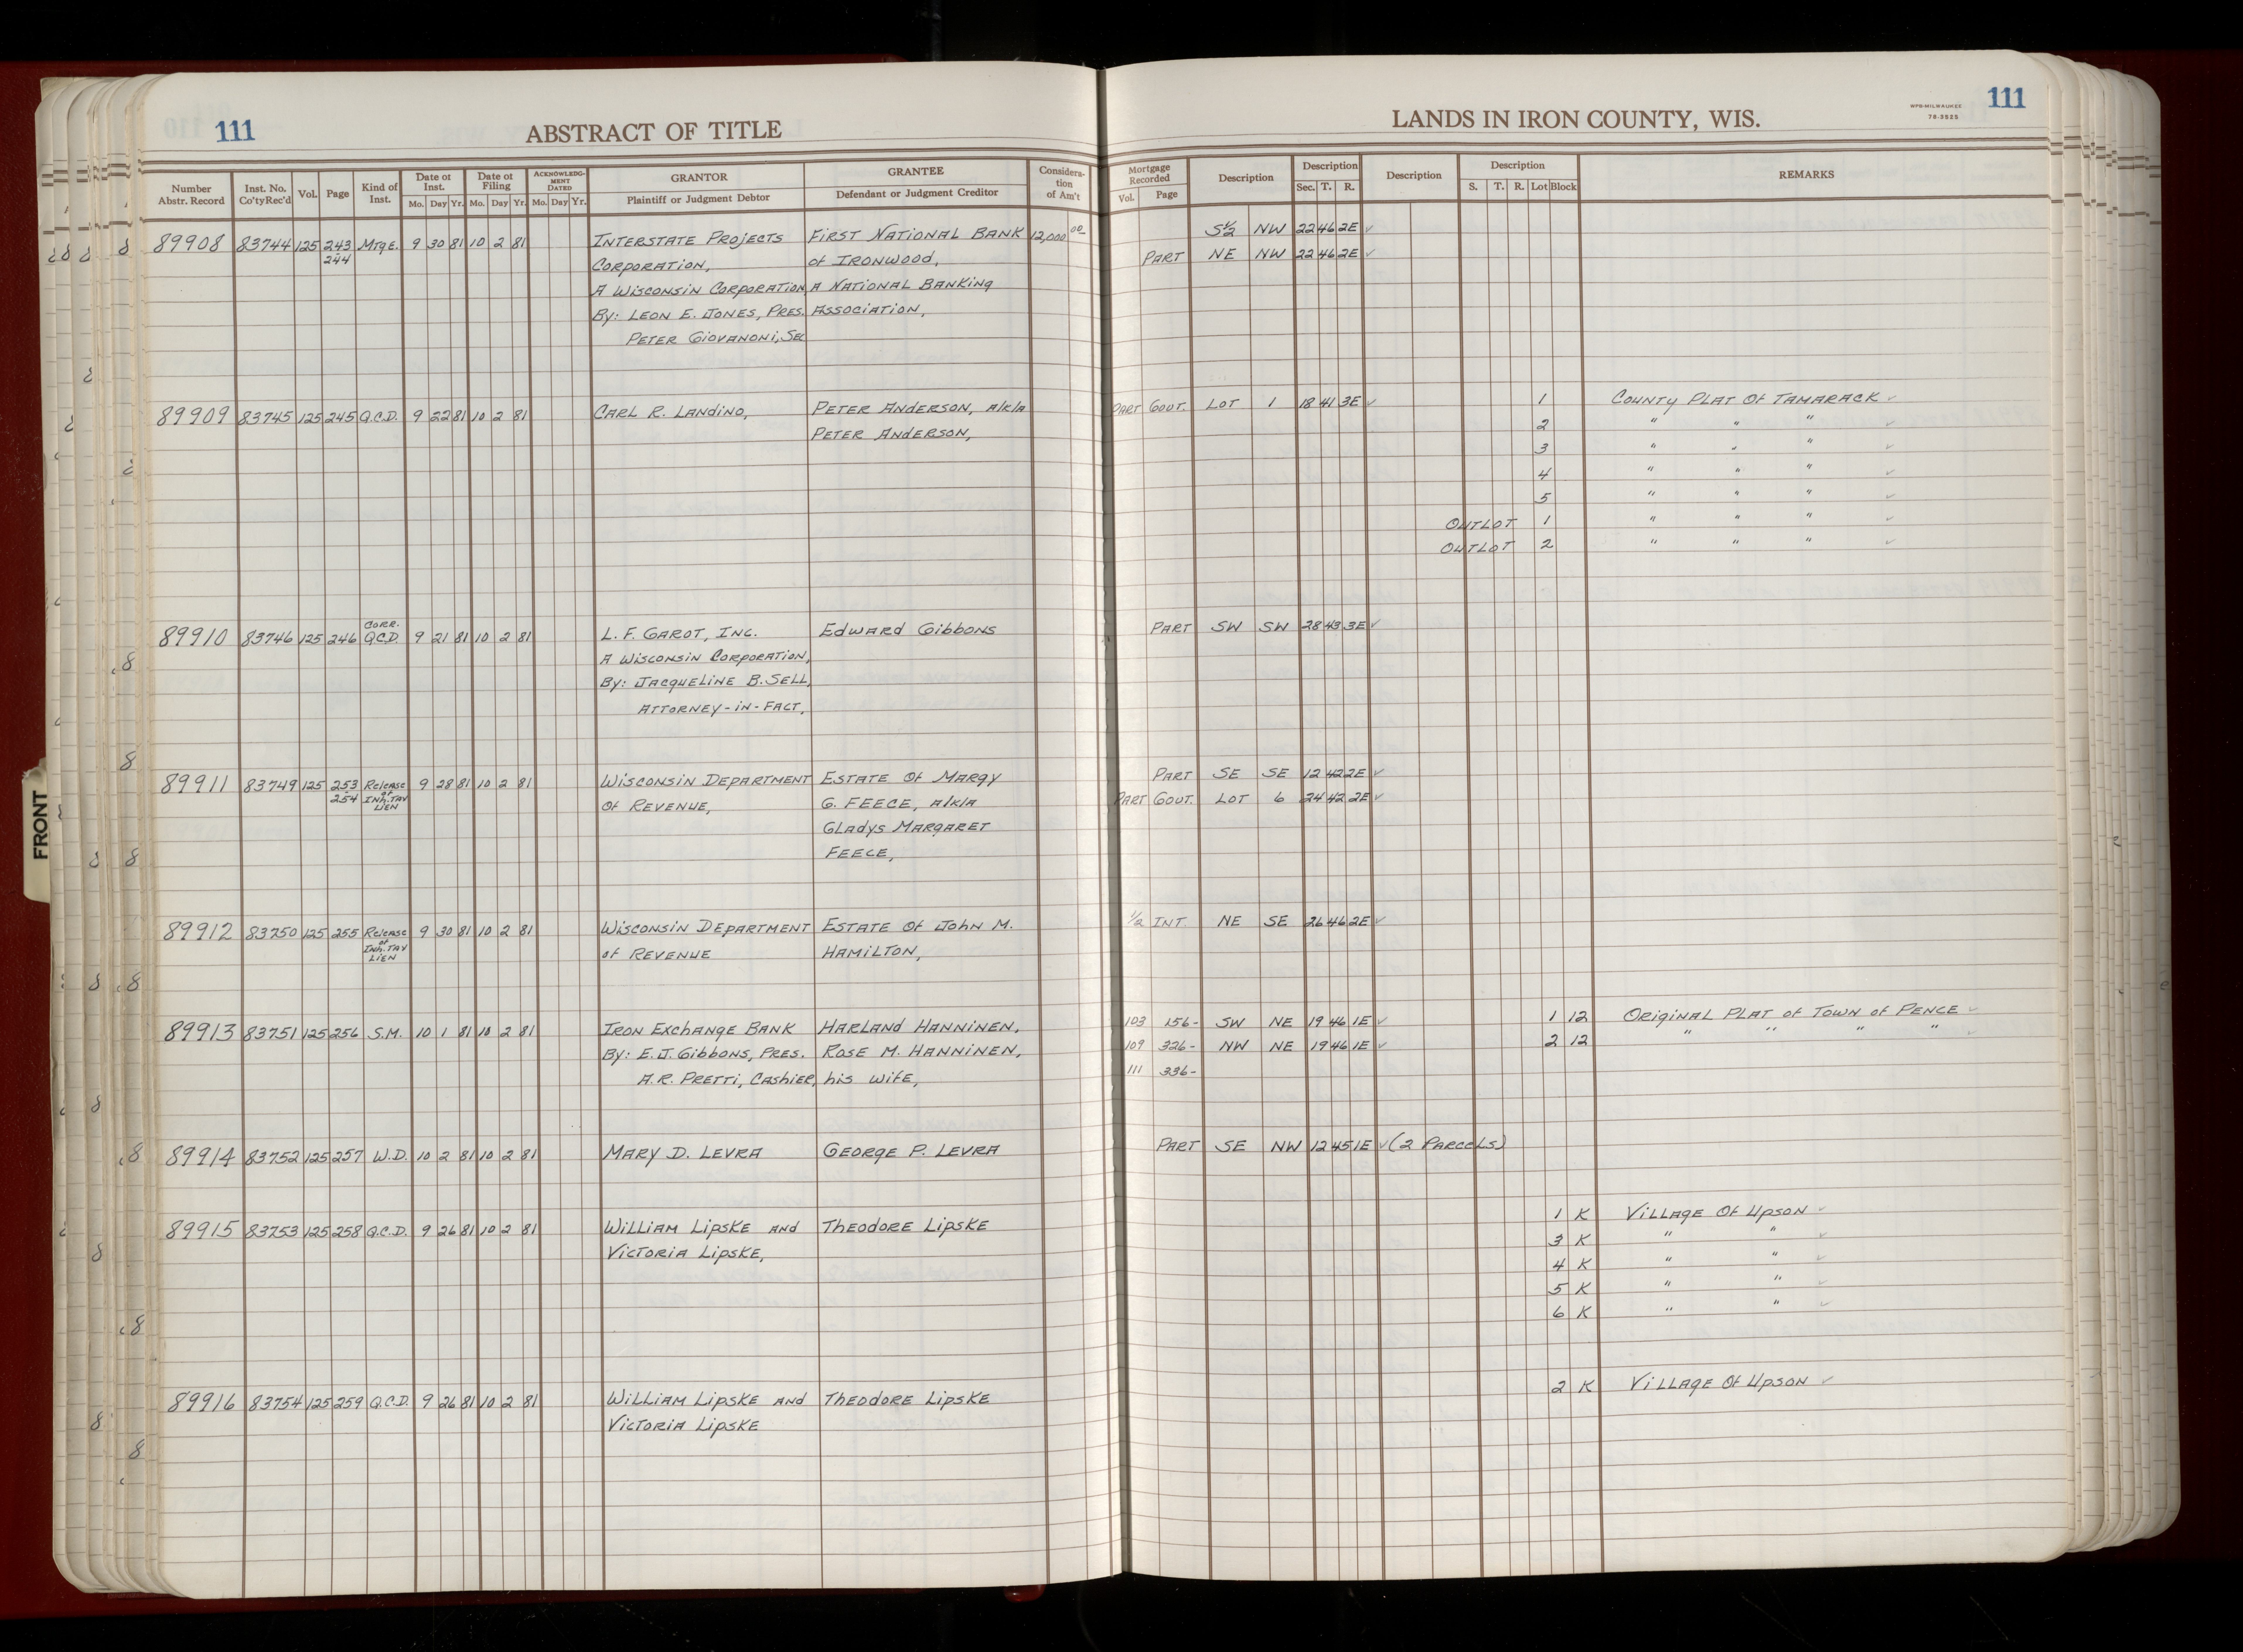 111 ABSTRACT OF TITLE LANDS IN IRON COUNTY, WIS. WPB-MILWAUKEE 78-3525 111
Number Abstr. Record Inst. No. Co'ty Rec'd Vol. Page Kind of Inst. Date of Inst. Mo. Day Yr. Date of Filing Mo. Day Yr. ACKNOWLEDG-MENT DATED Mo. Day Yr. GRANTOR Plaintiff or Judgment Debtor GRANTEE Defendant or Judgment Creditor Considera-tion of Am't Mortgage Recorded Vol. Page Description Description Sec. T. R. Description Description S. T. R. Lot Block REMARKS
89908 83744 125 243 MTGE. 9 30 81 10 2 81 INTERSTATE PROJECTS FIRST NATIONAL BANK 12,000.00 S½ NW 22 46 2E ✓
244 CORPORATION, of IRONWOOD, PART NE NW 22 46 2E ✓
A WISCONSIN CORPORATION, A NATIONAL BANKING
By: LEON E. JONES, PRES. ASSOCIATION,
PETER GIOVANONI, SEC
89909 83745 125 245 Q.C.D. 9 22 81 10 2 81 CARL R. LANDINO, PETER ANDERSON, a/k/a PART GOVT. LOT 1 18 41 3E ✓ 1 COUNTY PLAT OF TAMARACK ✓
PETER ANDERSON, 2 " " " ✓
3 " " " ✓
4 " " " ✓
5 " " " ✓
OUTLOT 1 " " " ✓
OUTLOT 2 " " " ✓
CORR.
89910 83746 125 246 Q.C.D. 9 21 81 10 2 81 L. F. GAROT, INC. EDWARD GIBBONS PART SW SW 28 43 3E ✓
A WISCONSIN CORPORATION,
By: JACQUELINE B. SELL,
ATTORNEY-IN-FACT,
89911 83749 125 253 Release 9 28 81 10 2 81 WISCONSIN DEPARTMENT ESTATE OF MARGY PART SE SE 12 42 2E ✓
254 of INH. TAX LIEN OF REVENUE, G. FEECE, a/k/a PART GOVT. LOT 6 24 42 2E ✓
GLADYS MARGARET
FEECE,
89912 83750 125 255 Release 9 30 81 10 2 81 WISCONSIN DEPARTMENT ESTATE OF JOHN M. 1/2 INT. NE SE 26 46 2E ✓
of INH. TAX LIEN of REVENUE HAMILTON,
89913 83751 125 256 S.M. 10 1 81 10 2 81 IRON EXCHANGE BANK HARLAND HANNINEN, 103 156- SW NE 19 46 1E ✓ 1 12 ORIGINAL PLAT of TOWN of PENCE ✓
By: E. J. GIBBONS, PRES. ROSE M. HANNINEN, 109 326- NW NE 19 46 1E ✓ 2 12 " " " " ✓
A. R. PRETTI, CASHIER, his WIFE, 111 336-
89914 83752 125 257 W.D. 10 2 81 10 2 81 MARY D. LEVRA GEORGE P. LEVRA PART SE NW 12 45 1E ✓ (2 PARCELS)
89915 83753 125 258 Q.C.D. 9 26 81 10 2 81 WILLIAM LIPSKE AND THEODORE LIPSKE 1 K VILLAGE OF UPSON ✓
VICTORIA LIPSKE, 3 K " " ✓
4 K " " ✓
5 K " " ✓
6 K " " ✓
89916 83754 125 259 Q.C.D. 9 26 81 10 2 81 WILLIAM LIPSKE AND THEODORE LIPSKE 2 K VILLAGE OF UPSON ✓
VICTORIA LIPSKE
FRONT